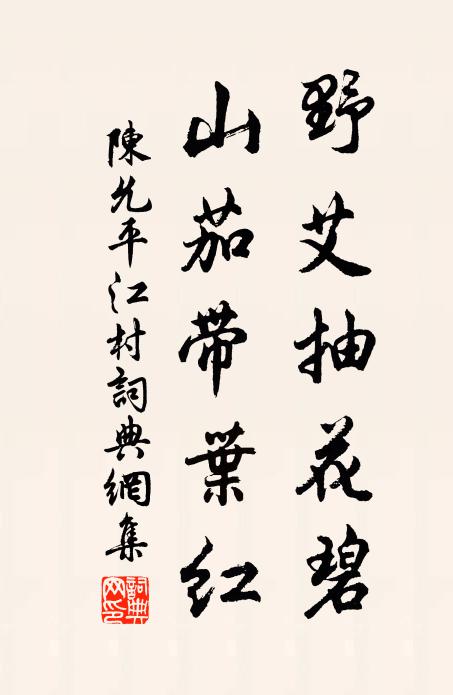 野艾抽花碧
山茄帶葉紅
陳允平江村詞典網集
詞典网印